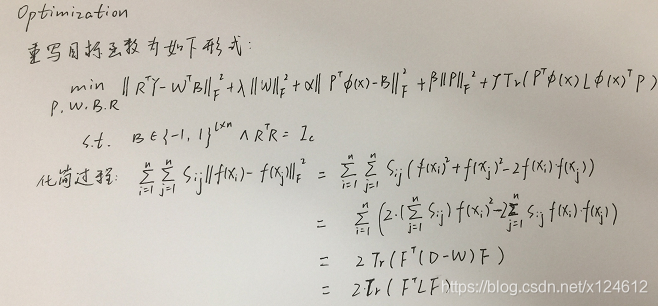 Optimization
重写目标函数为如下形式:
min ‖RᵀY-WᵀB‖²_F + λ‖W‖²_F + α‖Pᵀφ(x)-B‖²_F + β‖P‖²_F + γTr(Pᵀφ(x)Lφ(x)ᵀP)
P.W.B.R
s.t. B∈{-1,1}^{l×n} ∧ RᵀR = I_c
化简过程: ∑_{i=1}^{n} ∑_{j=1}^{n} S_{ij}‖f(x_i)-f(x_j)‖²_F = ∑_{i=1}^{n} ∑_{j=1}^{n} S_{ij}(f(x_i)²+f(x_j)²-2f(x_i)·f(x_j))
= ∑_{i=1}^{n}(2·(∑_{j=1}^{n} S_{ij})f(x_i)²-2∑_{j=1}^{n} S_{ij} f(x_i)·f(x_j))
= 2Tr(Fᵀ(D-W)F)
= 2·Tr(FᵀLF)
https://blog.csdn.net/x124612